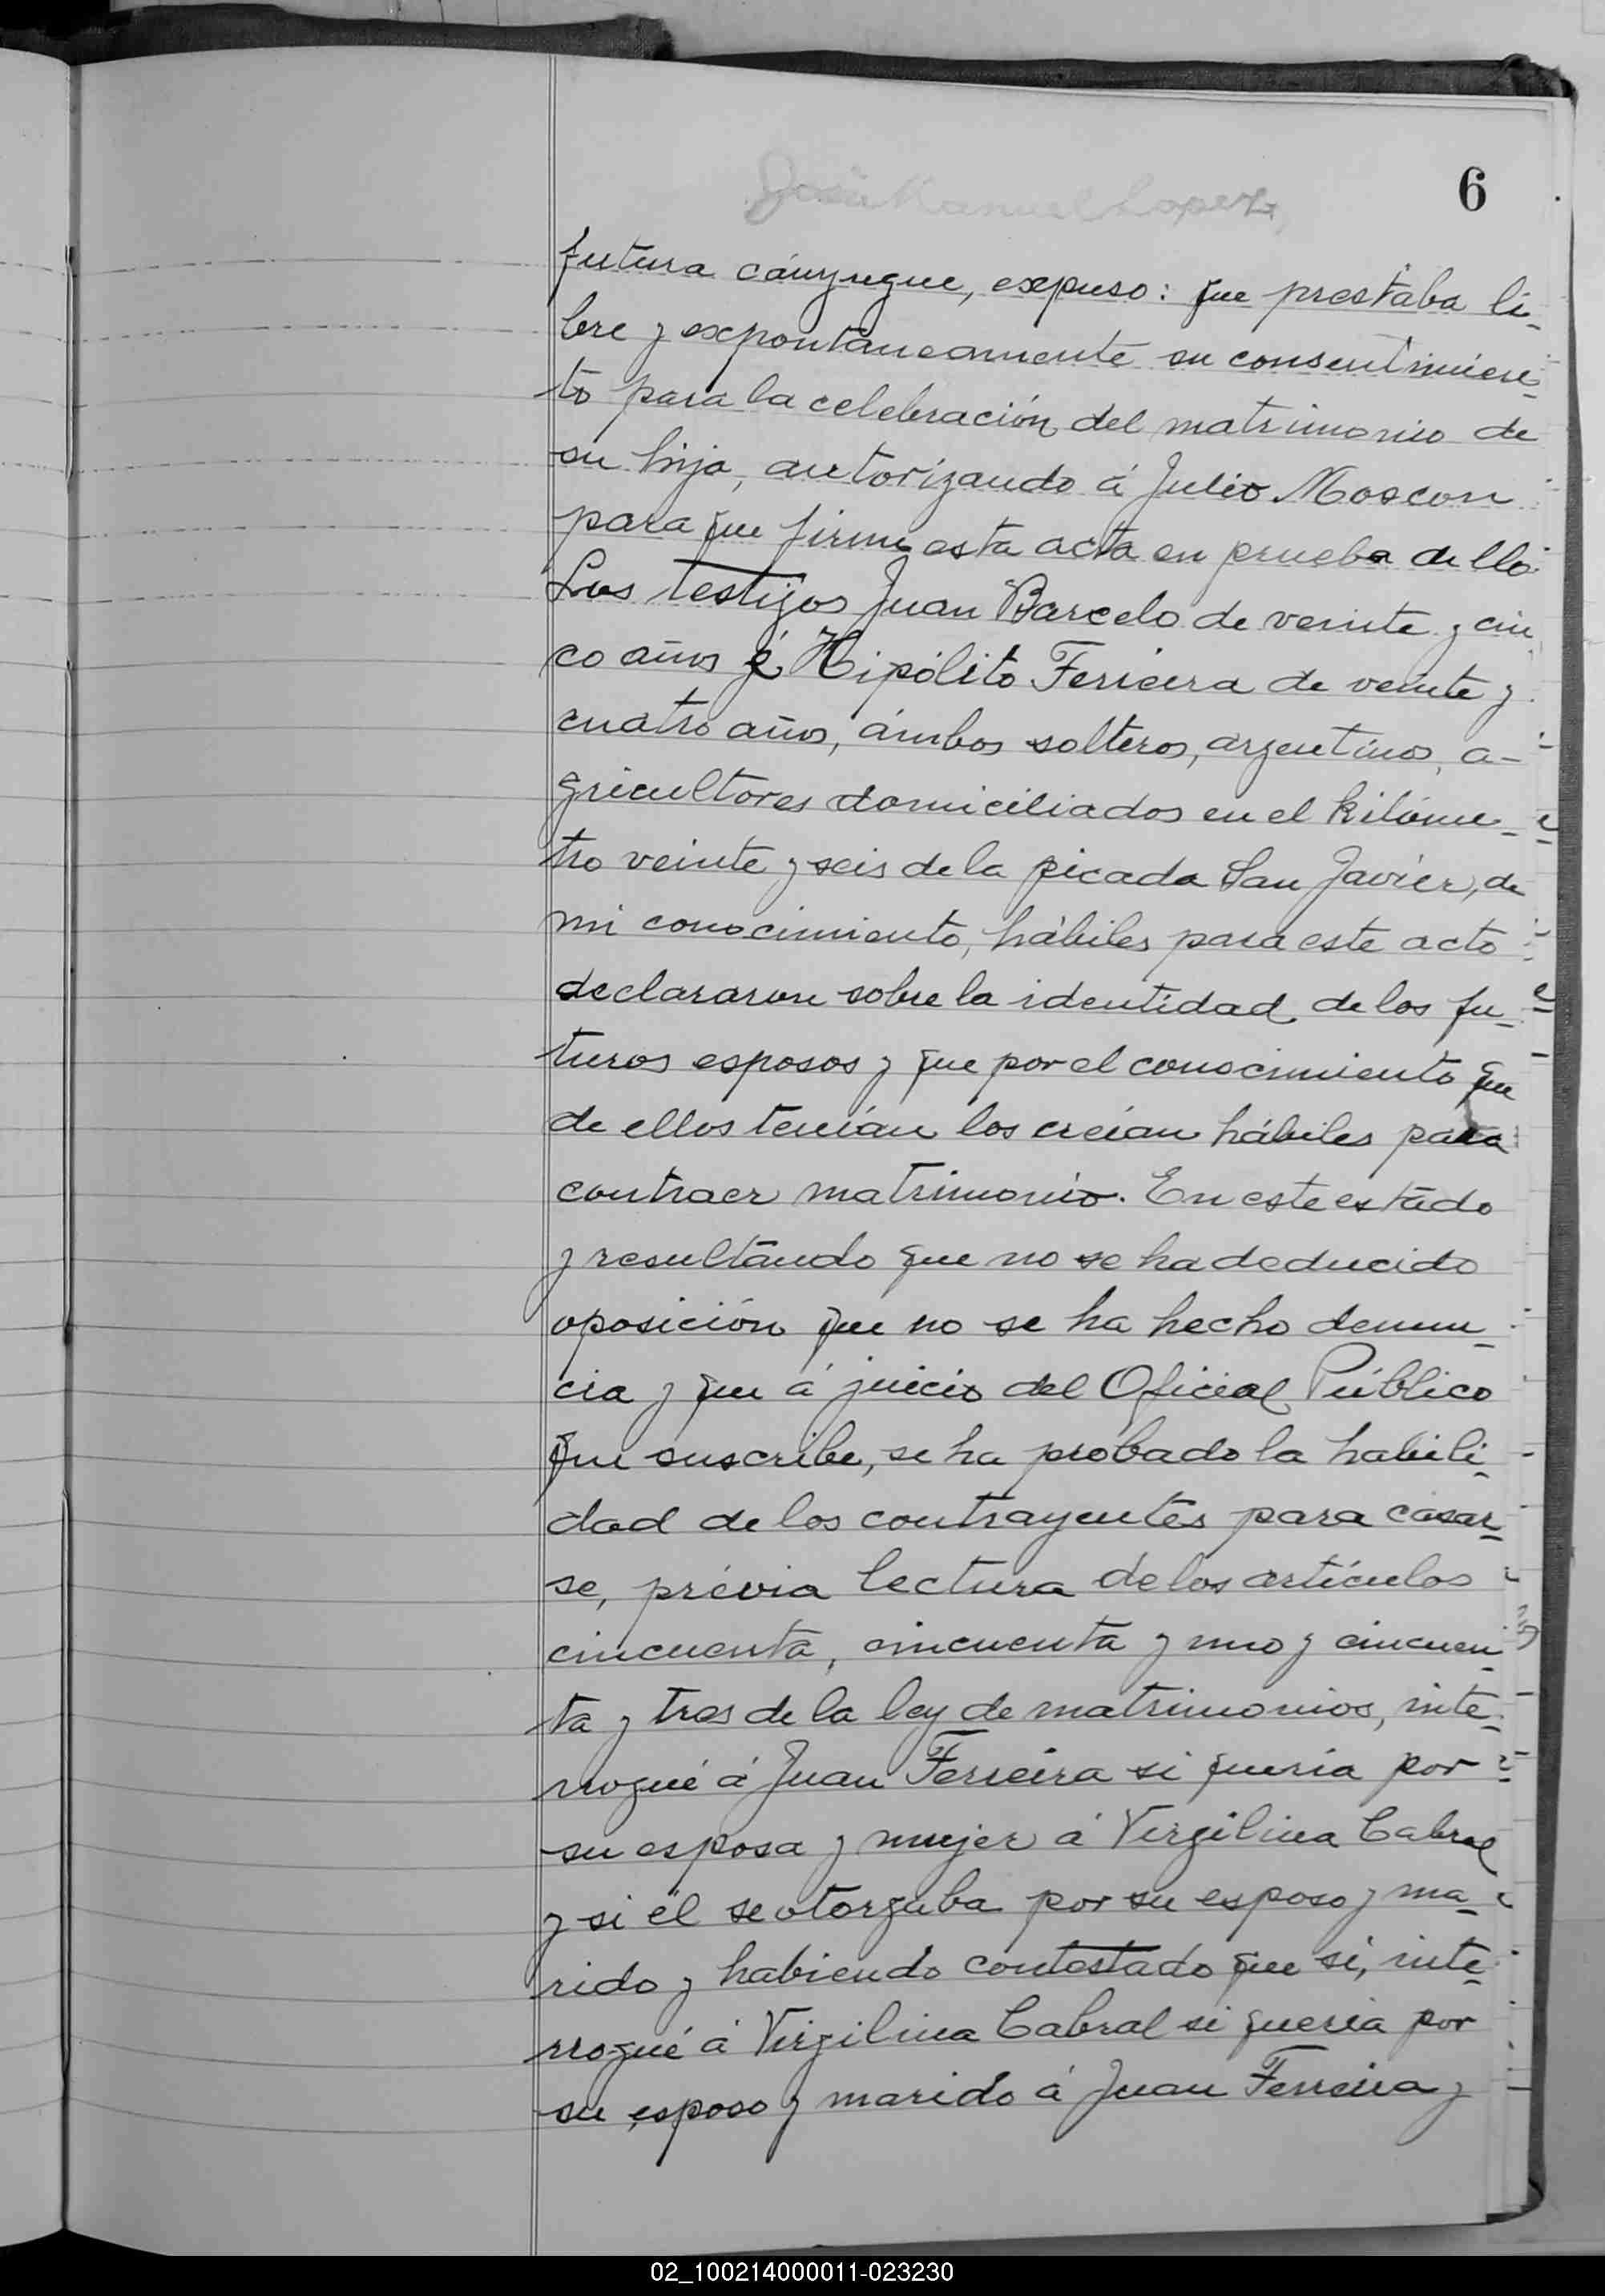 6
José Manuel Lopez
futura cónyugue, expuso: que prestaba li-
bre y expontáneamente su consentimien-
to para la celebración del matrimonio de
su hija, autorizando á Julio Moscon
para que firme esta acta en prueba de llo.
Los testigos Juan Barcelo de veinte y cin
co años é Hipólito Ferreira de veinte y
cuatro años, ámbos solteros, argentinos, a-
gricultores domiciliados en el kilóme-
tro veinte y seis de la picada San Javier, de
mi conocimiento, hábiles para este acto
declararon sobre la identidad de los fu-
turos esposos y que por el conocimiento que
de ellos tenían los creían hábiles para
contraer matrimonio. En este estado
y resultando que no se ha deducido
oposición que no se ha hecho denun-
cia y que á juicio del Oficial Público
que suscribe, se ha probado la habili-
dad de los contrayentes para casar-
se, prévia lectura de los artículos
cincuenta, cincuenta y uno y cincuen-
ta y tres de la ley de matrimonios, inte-
rrogué á Juan Ferreira si quería por
su esposa y mujer á Virgilina Cabral
y si él se otorgaba por su esposo y ma-
rido y habiendo contestado que si, inte-
rrogué á Virgilina Cabral si quería por
su esposo y marido á Juan Ferreira y
02_100214000011-023230